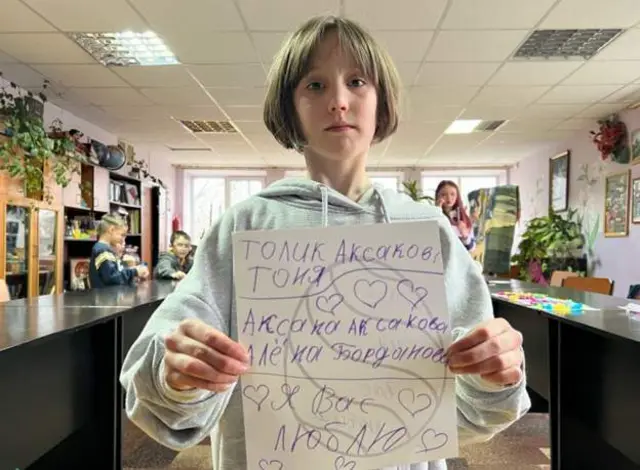 ТОЛИК АКСАКОВ,
ТОНЯ
АКСАНА АКСАКОВА
АЛЁНА БОРДАНОВА
Я ВАС
ЛЮБЛЮ